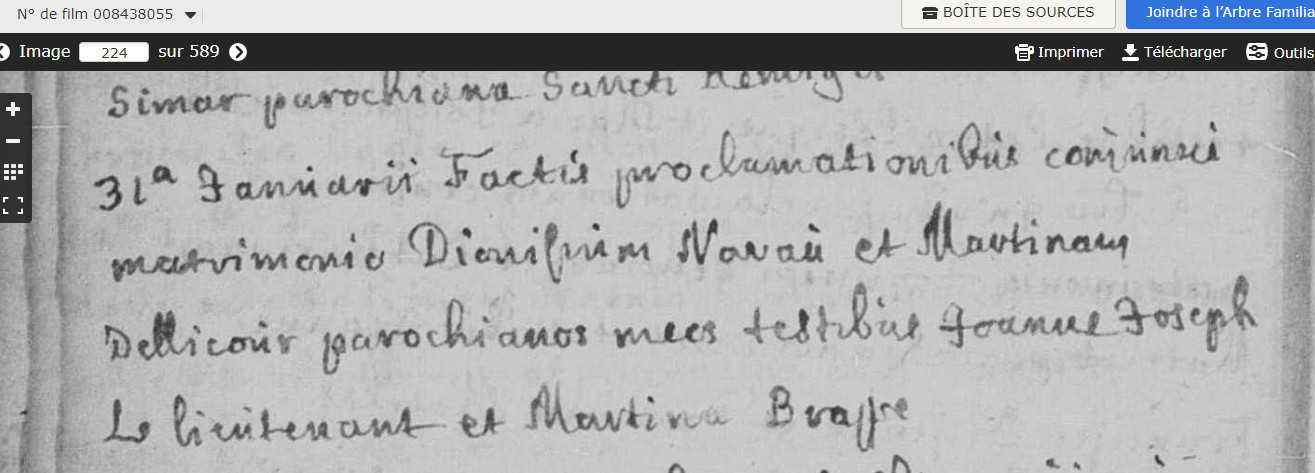 N° de film 008438055
BOÎTE DES SOURCES
Joindre à l'Arbre Familia
Image 224 sur 589
Imprimer
Télécharger
Outils
Simar parochiana Sancti Remigii
31a Januarii Factis proclamationibus coniunxi
matrimonio Dionisium Navaù et Martinam
Dellicour parochianos meos testibus Joanne Joseph
Le lieutenant et Martina Brasse